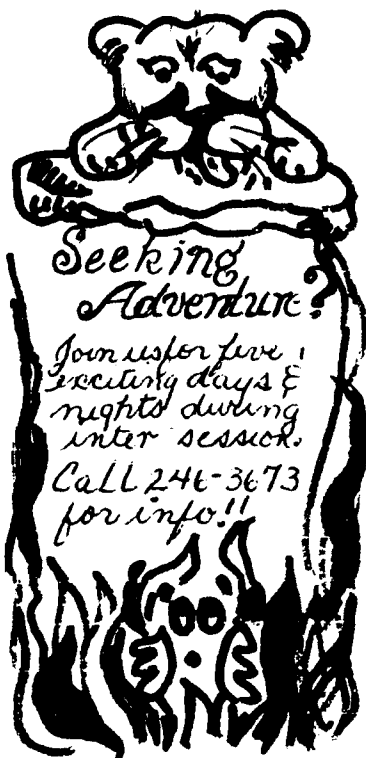 Seeking
Adventure?
Join us for five
exciting days &
nights during
inter session.
Call 246-3673
for info!!